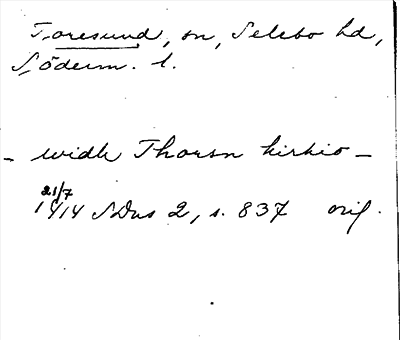 Toresund, sn, Selebo hd,
Söderm. l.
– widh Thorsn kirkio –
21/7
1414 SDns 2, s. 837 orig.